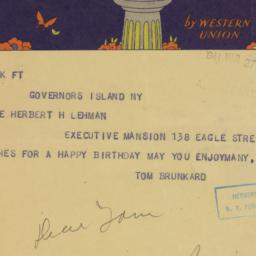 by WESTERN
UNION
K FT
GOVERNORS ISLAND NY
E HERBERT H LEHMAN
EXECUTIVE MANSION 138 EAGLE STRE
HES FOR A HAPPY BIRTHDAY MAY YOU ENJOYMANY,
TOM BRUNKARD
Dear Tom